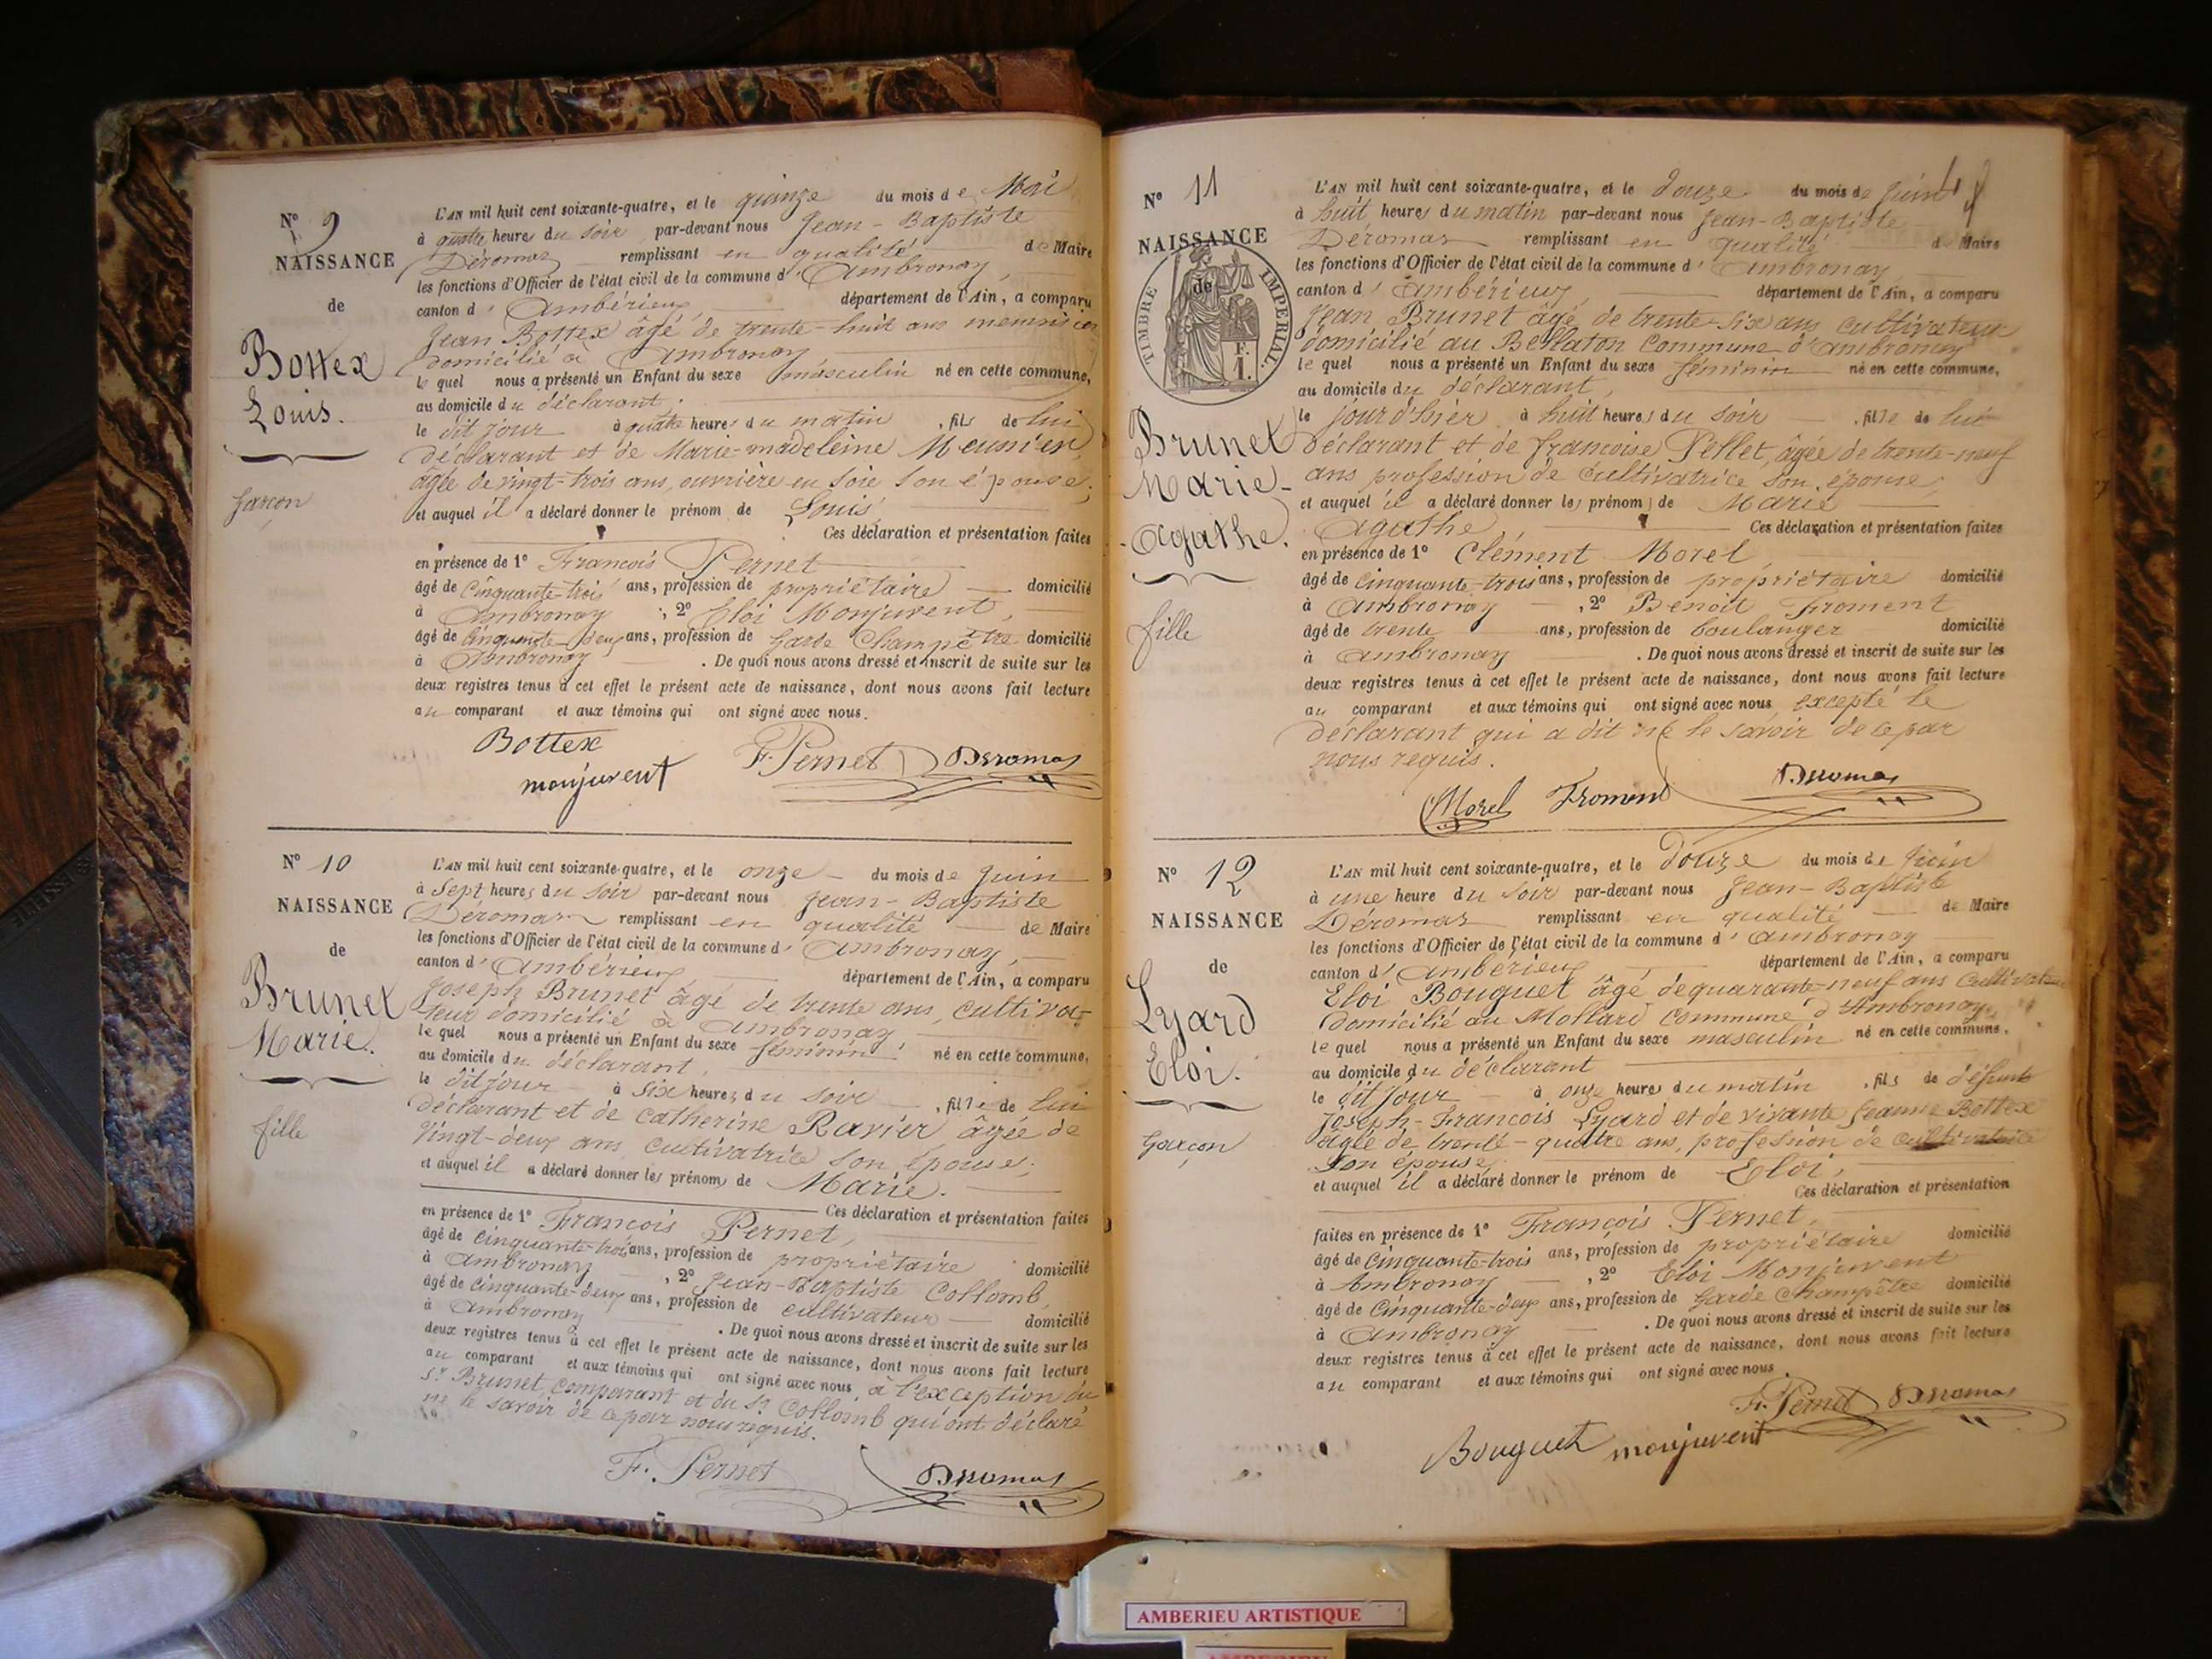 N° 9
NAISSANCE
de
Bottex
Louis.
garçon
L'AN mil huit cent soixante-quatre, et le quinze du mois de Mai
à quatre heures du soir par-devant nous Jean-Baptiste
Déromas remplissant en qualité de Maire
les fonctions d'Officier de l'état civil de la commune d'Ambronay,
canton d'Ambérieux département de l'Ain, a comparu
Jean Bottex âgé de trente-huit ans menuisier
domicilié à Ambronay
le quel nous a présenté un Enfant du sexe masculin né en cette commune,
au domicile du déclarant,
le dit jour à quatre heures du matin, fils de lui
déclarant et de Marie-madeleine Meunier,
âgée de vingt-trois ans, ouvrière en soie son épouse;
et auquel il a déclaré donner le prénom de Louis
Ces déclaration et présentation faites
en présence de 1° François Pernet
âgé de cinquante-trois ans, profession de propriétaire domicilié
à Ambronay, 2° Eloi Monjuvent,
âgé de cinquante-deux ans, profession de Garde Champêtre domicilié
à Ambronay. De quoi nous avons dressé et inscrit de suite sur les
deux registres tenus à cet effet le présent acte de naissance, dont nous avons fait lecture
au comparant et aux témoins qui ont signé avec nous.
Bottex F. Pernet Deromas
monjuvent
N° 10
NAISSANCE
de
Brunet
Marie.
fille
L'AN mil huit cent soixante-quatre, et le onze du mois de Juin
à Sept heures du soir par-devant nous Jean-Baptiste
Déromas remplissant en qualité de Maire
les fonctions d'Officier de l'état civil de la commune d'Ambronay,
canton d'Ambérieux département de l'Ain, a comparu
Joseph Brunet âgé de trente ans, cultiva-
teur domicilié à Ambronay
le quel nous a présenté un Enfant du sexe féminin né en cette commune,
au domicile du déclarant,
le dit jour à six heures du soir, fille de lui
déclarant et de Catherine Ravier, âgée de
vingt-deux ans, cultivatrice son épouse;
et auquel il a déclaré donner les prénoms de Marie.
Ces déclaration et présentation faites
en présence de 1° François Pernet,
âgé de cinquante-trois ans, profession de propriétaire domicilié
à Ambronay, 2° Jean-Baptiste Collomb,
âgé de cinquante-deux ans, profession de cultivateur domicilié
à Ambronay. De quoi nous avons dressé et inscrit de suite sur les
deux registres tenus à cet effet le présent acte de naissance, dont nous avons fait lecture
au comparant et aux témoins qui ont signé avec nous, à l'exception du
Sr Brunet, comparant et du Sr Collomb qui ont déclaré
ne le savoir de ce par nous requis.
F. Pernet Deromas
N° 11
NAISSANCE
de
TIMBRE IMPERIAL
F.
1.
Brunet
Marie-
Agathe.
fille
L'AN mil huit cent soixante-quatre, et le douze du mois de Juin
à huit heures du matin par-devant nous Jean-Baptiste
Déromas remplissant en qualité de Maire
les fonctions d'Officier de l'état civil de la commune d'Ambronay
canton d'Ambérieux, département de l'Ain, a comparu
Jean Brunet âgé de trente-six ans cultivateur
domicilié au Bellaton Commune d'ambronay
le quel nous a présenté un Enfant du sexe féminin né en cette commune,
au domicile du déclarant,
le jour d'hier à huit heures du soir, fille de lui
déclarant et de françoise Pellet, âgée de trente-neuf
ans profession de cultivatrice son épouse;
et auquel il a déclaré donner les prénoms de Marie
Agathe, Ces déclaration et présentation faites
en présence de 1° Clément Morel
âgé de cinquante-trois ans, profession de propriétaire domicilié
à Ambronay, 2° Benoit Froment
âgé de trente ans, profession de boulanger domicilié
à Ambronay. De quoi nous avons dressé et inscrit de suite sur les
deux registres tenus à cet effet le présent acte de naissance, dont nous avons fait lecture
au comparant et aux témoins qui ont signé avec nous excepté le
déclarant qui a dit ne le savoir de ce par
nous requis.
Morel Froment Deromas
N° 12
NAISSANCE
de
Lyard
Eloi.
Garçon
L'AN mil huit cent soixante-quatre, et le douze du mois de Juin
à une heure du soir par-devant nous Jean-Baptiste
Déromas remplissant en qualité de Maire
les fonctions d'Officier de l'état civil de la commune d'Ambronay
canton d'Ambérieux département de l'Ain, a comparu
Eloi Bouguet âgé de quarante-neuf ans cultivateur
domicilié au Mollard Commune d'Ambronay,
le quel nous a présenté un Enfant du sexe masculin né en cette commune,
au domicile du déclarant
le dit jour à onze heures du matin, fils de défunt
Joseph-François Lyard et de vivante Jeanne Bottex
âgée de trente-quatre ans, profession de cultivatrice
son épouse;
et auquel il a déclaré donner le prénom de Eloi,
Ces déclaration et présentation
faites en présence de 1° François Pernet,
âgé de cinquante-trois ans, profession de propriétaire domicilié
à Ambronay, 2° Eloi Monjuvent
âgé de cinquante-deux ans, profession de Garde Champêtre domicilié
à Ambronay. De quoi nous avons dressé et inscrit de suite sur les
deux registres tenus à cet effet le présent acte de naissance, dont nous avons fait lecture
au comparant et aux témoins qui ont signé avec nous.
F. Pernet Deromas
Bouguet monjuvent
AMBERIEU ARTISTIQUE
AMBERIEU